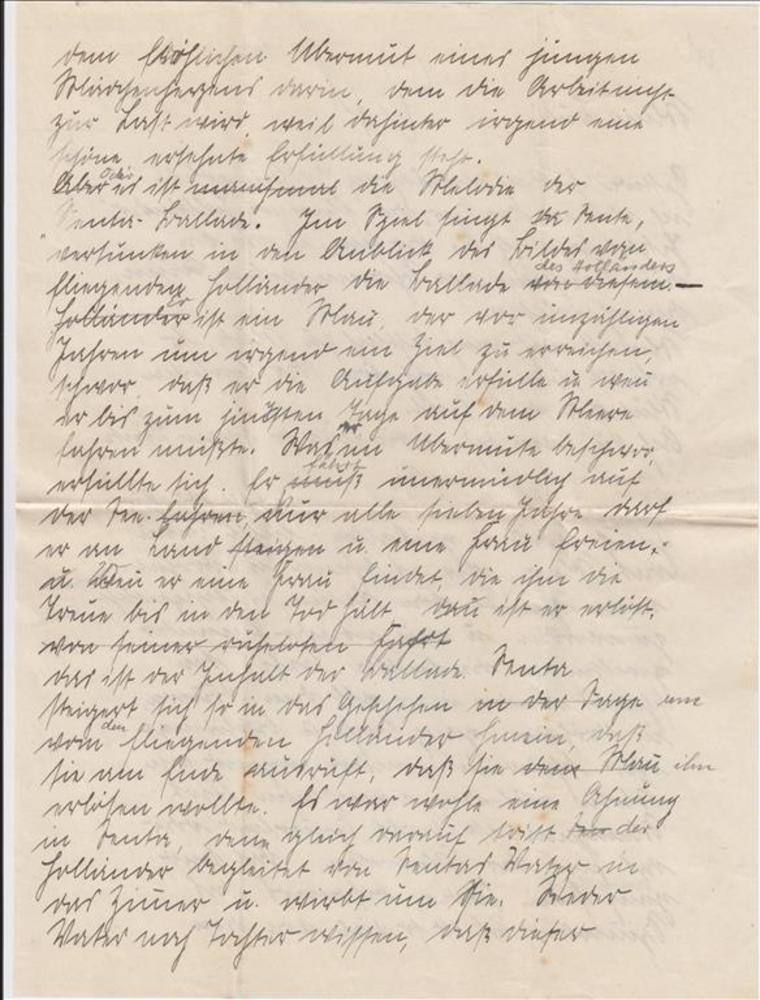 dem fröhlichen Übermut eines jungen
Mädchenherzens darin, dem die Arbeit nicht
zur Last wird, weil dahinter irgend eine
schöne, ersehnte Erfüllung steht.
Aber oder es ist manchmal die Melodie der
Senta-Ballade. Im Spiel singt die Senta,
versunken in den Anblick des Bildes vom
fliegenden Holländer die Ballade von diesem. des Holländers —
Holländer Er ist ein Mann, der vor unzähligen
Jahren um irgend ein Ziel zu erreichen,
schwor, daß er die Aufgabe erfülle u. wenn
er bis zum jüngsten Tage auf dem Meere
fahren müßte. Was er im Übermute beschwor,
erfüllte sich. Er muß fährt unermüdlich auf
der See. fahren, Nur alle sieben Jahre darf
er an Land steigen u. eine Frau freien,
u. Wenn er eine Frau findet, die ihm die
Treue bis in den Tod hält, dann ist er erlöst.
von seiner ruhelosen Fahrt
das ist der Inhalt der Ballade. Senta
steigert sich so in das Geschehen in der Sage um
vom den fliegenden Holländer hinein, daß
sie am Ende ausruft, daß sie den Mann ihn
erlösen wollte. Es war wohl eine Ahnung
in Senta, denn gleich darauf tritt der
Holländer begleitet von Sentas Vater in
das Zimmer u. wirbt um Sie. Weder
Vater noch Tochter wissen, daß dieser